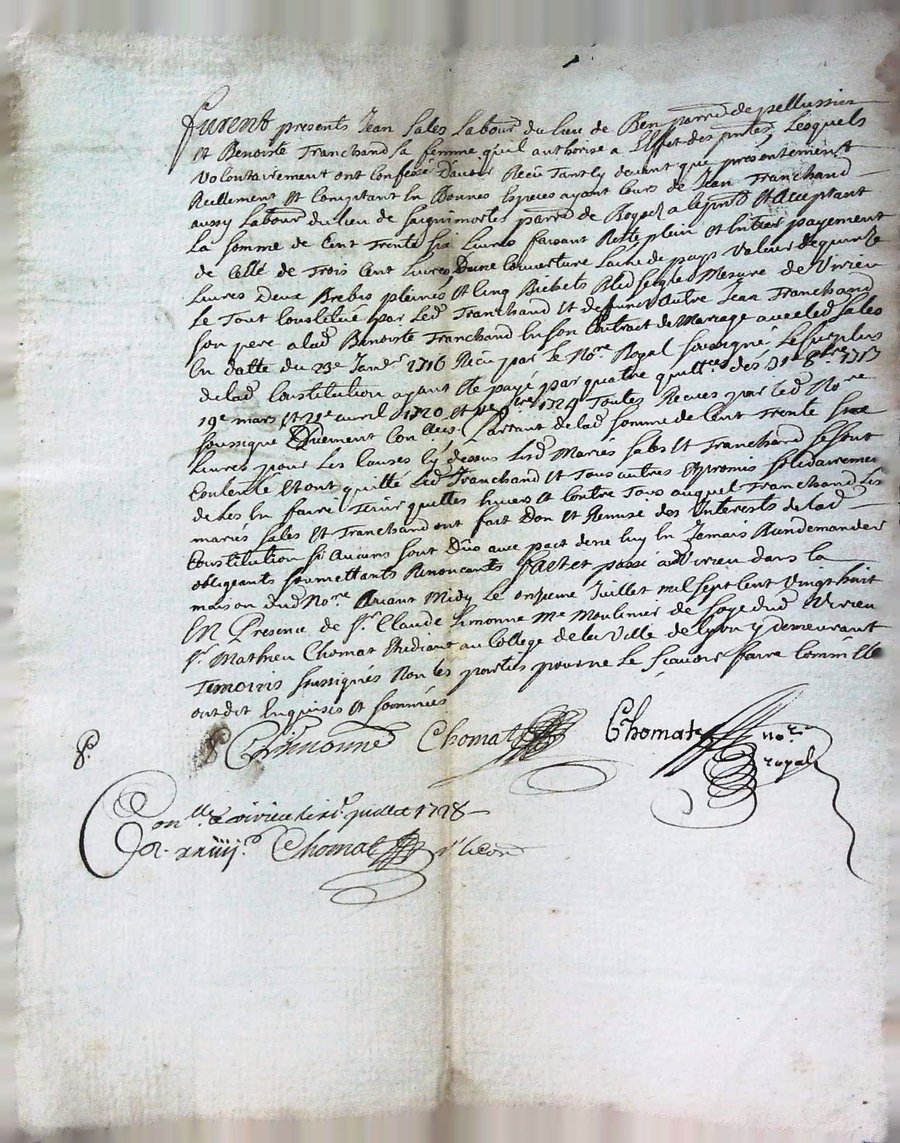 Furent presents Jean Sales Labour. du lieu de Ben parr. de pellussien
et Benoiste Franchand sa femme qu'il authorise a L'effet des pntes, Lesquels
volontairement ont confessé D'avoir Receu Tant cy devant que présentement
Reellement et Comptant En Bonnes Especes ayant Cours de Jean Franchand
aussy Labour. du lieu de parr. de a ce pnt et acceptant
La somme de Cent Trente six Livres faisant Reste plein et Entier payement
de Celle de Trois Cent Livres, D'une Couverture de pays valeur de quinze
Livres Deux Brebis pleines et Cinq Bichets Bled Seigle Mesure de Virieu
Le Tout Constitué par Led. Franchand et deffunct autre Jean Franchand
son pere a lad. Benoiste Franchand En son Contract de Mariage avec led Sales
En datte du 23e Janv. 1716 Receu par le Nore Royal soussigné Le surplus
de lad. Constitution ayant été payé par quatre quittces des 31e 8bre 1717
19e mars et 21e avril 1720 et 1724 Toutes Receues par led. Nore
soussigné Duement Conllées, Partant de lad. somme de Cent Trente six
Livres pour Les Causes Cy dessus Lesd. Mariés Sales et Franchand se sont
Contenté Et ont quitté Led. Franchand et Tous autres Et promis solidairement
de Les En faire Tenir quittes Envers et Contre Tous auquel Franchand Les
mariés Sales et Franchand ont fait Don et Remise des Interests de lad.
Constitution si Aucuns sont Dus avec pact de ne luy En Jamais Rien demander
obligeants soumettants Renonceants fait et passé a Virieu dans la
maison dud Nore Avant Midy Le onzieme Juillet mil sept Cent Vingt huit
En Presence de Sr. Claude Simonne Me Moulinier de Soye dud. Virieu
Sr. Mathieu Chomat Etudiant au College de la Ville de Lyon y demeurant
Temoins soussignés Non les parties pour ne Le sçavoir faire Comme Elles
ont dit Enquises et sommées
C Simonne Chomat Chomat nore
royal
Conllé a Virieu le Juillet 1728
R. Chomat